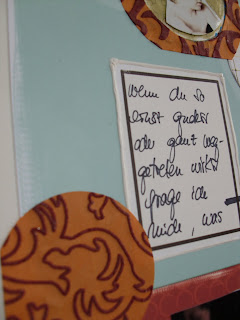 wenn du so
ernst guckst
oder ganz weg-
getreten wirkst
frage ich
mich, was